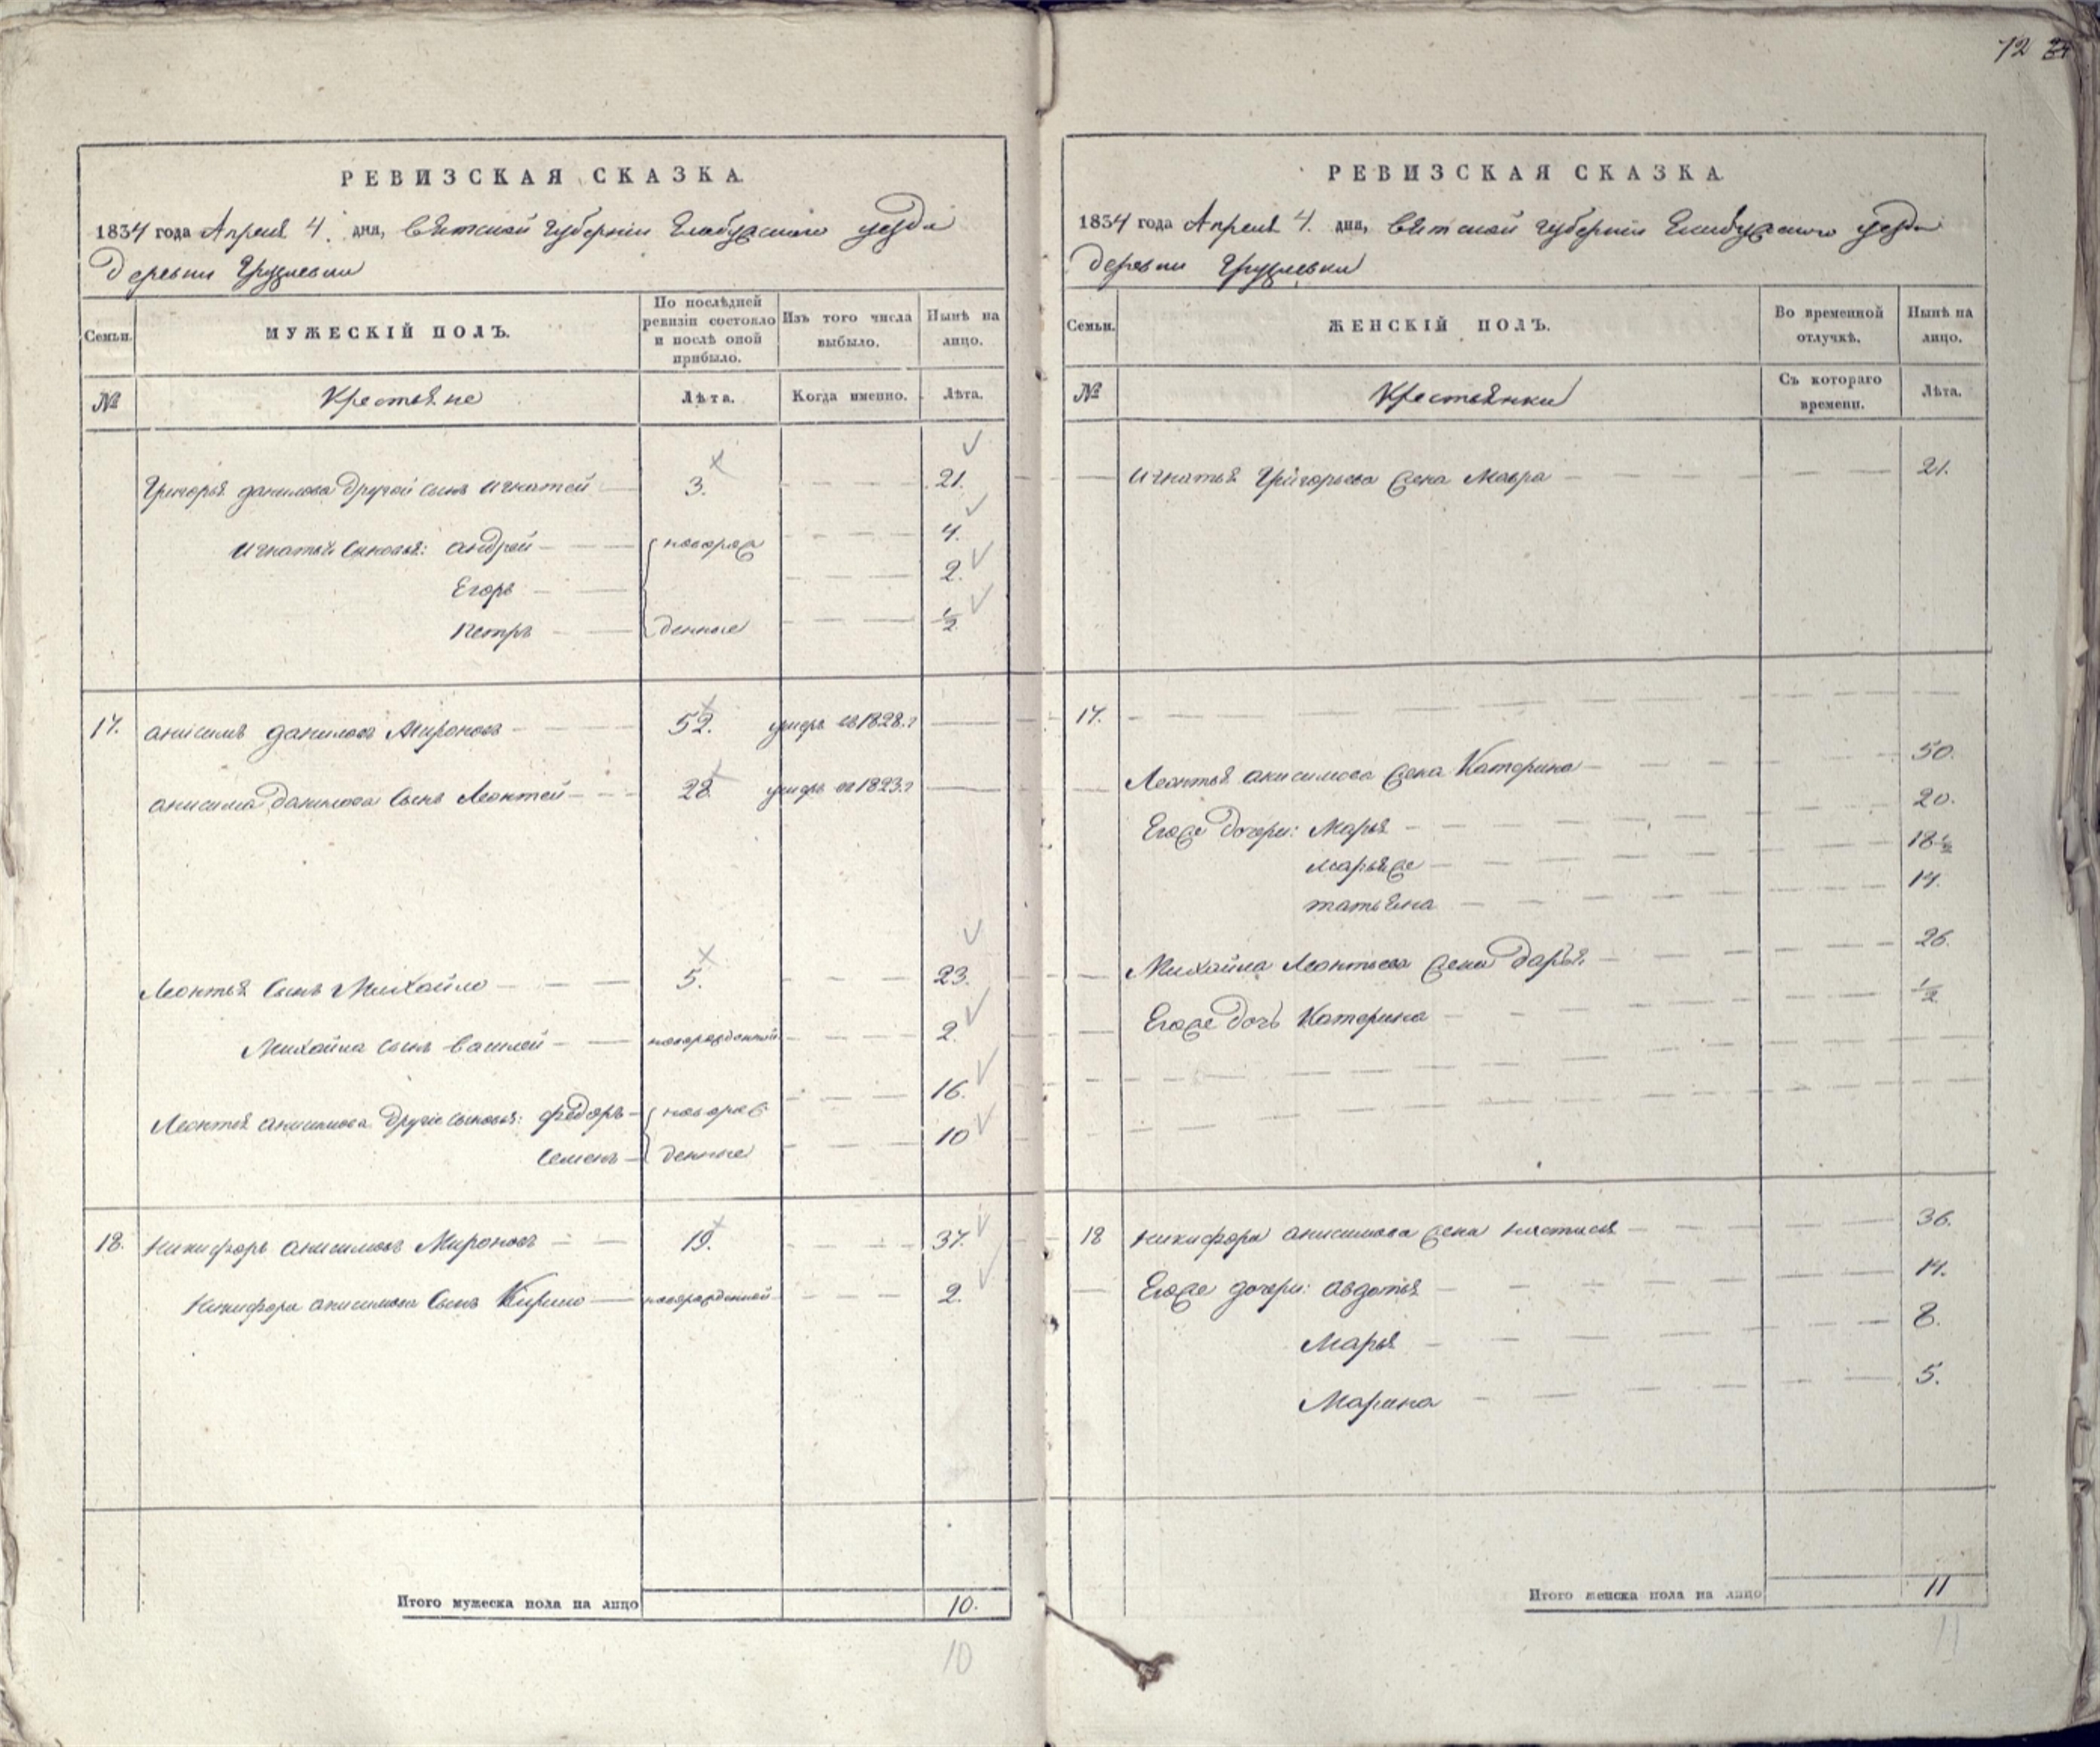 72 24
РЕВИЗСКАЯ СКАЗКА.
1834 года Апреля 4. дня, Вятской Губернии Елабужского уезда
деревни
Семьи.
МУЖЕСКІЙ ПОЛЪ.
По послѣдней ревизіи состояло и послѣ оной прибыло.
Изъ того числа выбыло.
Нынѣ на лицо.
№
Крестьяне
Лѣта.
Когда именно.
Лѣта.
Григорья Данилова другой сынъ Игнатей 3. 21.
Игнатья сыновья: Андрей новорож 4.
Егоръ 2.
Петръ денные 1/2
17. Анисимъ Даниловъ Мироновъ 52. умеръ въ 1828. г
Анисима Данилова сынъ Леонтей 28. умеръ въ 1823. г
Леонтья сынъ Михайло 5. 23.
Михайла сынъ Василей новорожденной 2.
Леонтья Анисимова другіе сыновья: Федоръ новорож 16.
Семенъ денные 10
18. Никифоръ Анисимовъ Мироновъ 19. 37.
Никифора Анисимова сынъ Кирило новорожденной 2.
Итого мужеска пола на лицо 10.
10
РЕВИЗСКАЯ СКАЗКА.
1834 года Апреля 4. дня, Вятской Губернии Елабужского уезда
деревни
Семьи.
ЖЕНСКІЙ ПОЛЪ.
Во временной отлучкѣ.
Нынѣ на лицо.
№
Крестьянки
Съ котораго времени.
Лѣта.
Игнатья Григорьева жена Мавра 21.
17.
Леонтья Анисимова жена Катерина 50.
Егоже дочери: Марья 20.
Марья же 18 1/2
Татьяна 14.
Михайла Леонтьева жена Дарья 26.
Егоже дочь Катерина 1/2
18 Никифора Анисимова жена Настасья 36.
Егоже дочери: Авдотья 14.
Марья 8.
Марина 5.
Итого женска пола на лицо 11
11